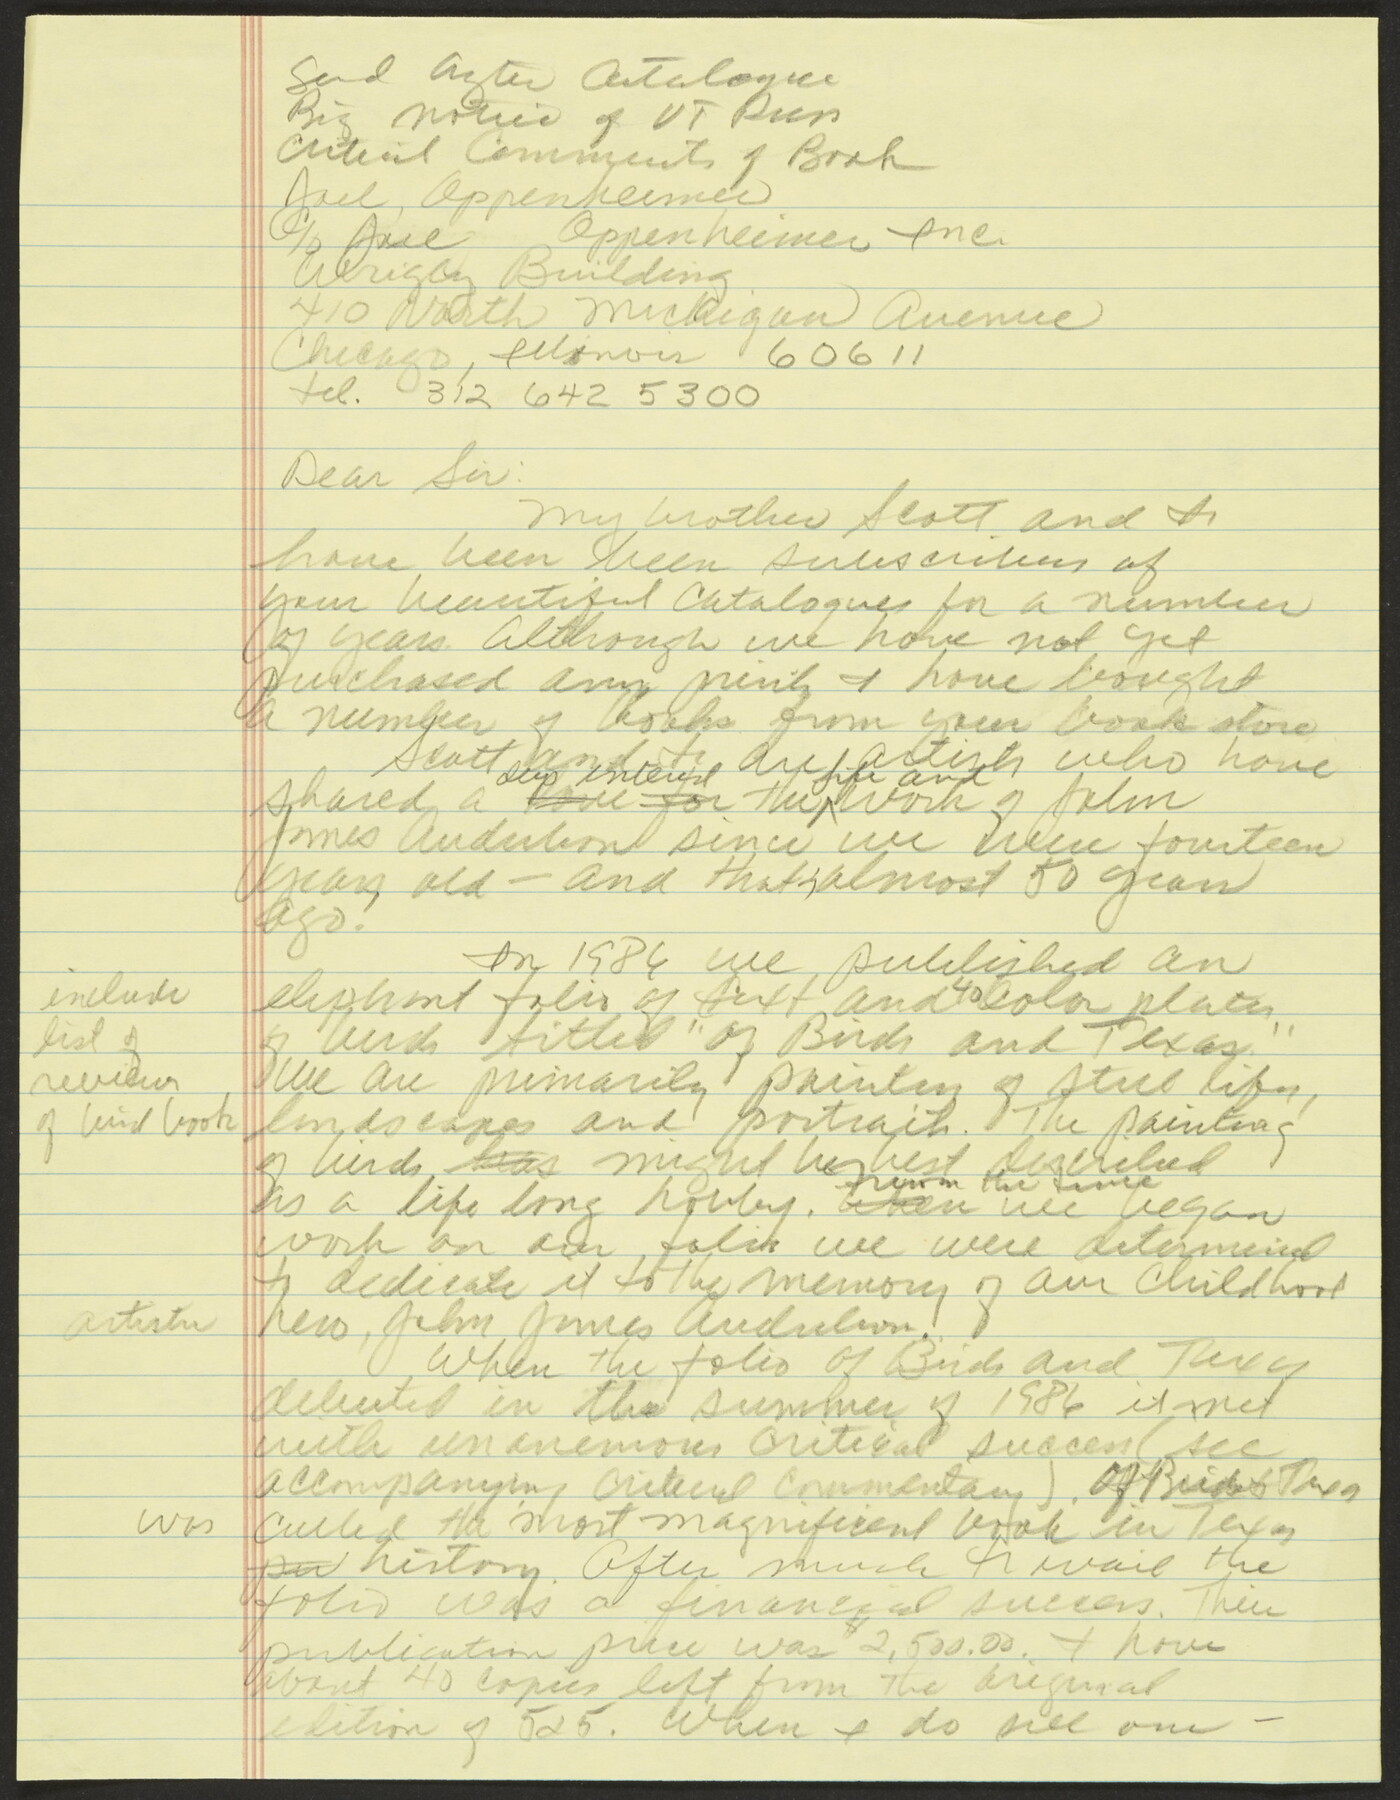 Send Aztec Catalogue
Big notice of UT Press
Critical Comments of Book
Joel Oppenheimer
C/o Joel Oppenheimer Inc.
Wrigley Building
410 North Michigan Avenue
Chicago, Illinois 60611
tel. 312 642 5300
Dear Sir:
My brother Scott and I
have been been subscribers of
your beautiful Catalogues for a number
of years. Although we have not yet
purchased any prints I have bought
a number of books from your book store
Scott and I are artists who have
shared a love for deep interest the life and work of John
James Audubon since we were fourteen
years old – and that's almost 50 years
ago!
In 1986 we published an
include
elephant folio of text and 40 color plates
list of
of birds titled "Of Birds and Texas."
reviews
We are primarily painters of still lifes,
of bird book
landscapes and portraits. The painting
of birds has might be best described
as a life long hobby. When from the time we began
work on our folio we were determined
to dedicate it to the memory of our childhood
artistic
hero, John James Audubon.
When the folio Of Birds and Texas
debuted in the summer of 1986 it met
with unanemous critical success (see
accompanying critical commentary). Of Birds & Texas
was
called the most magnificent book in Texas
history. After much travail the
folio was a financial success. Their
publication price was $2,500.00. I have
about 40 copies left from the original
edition of 525. When I do sell one –